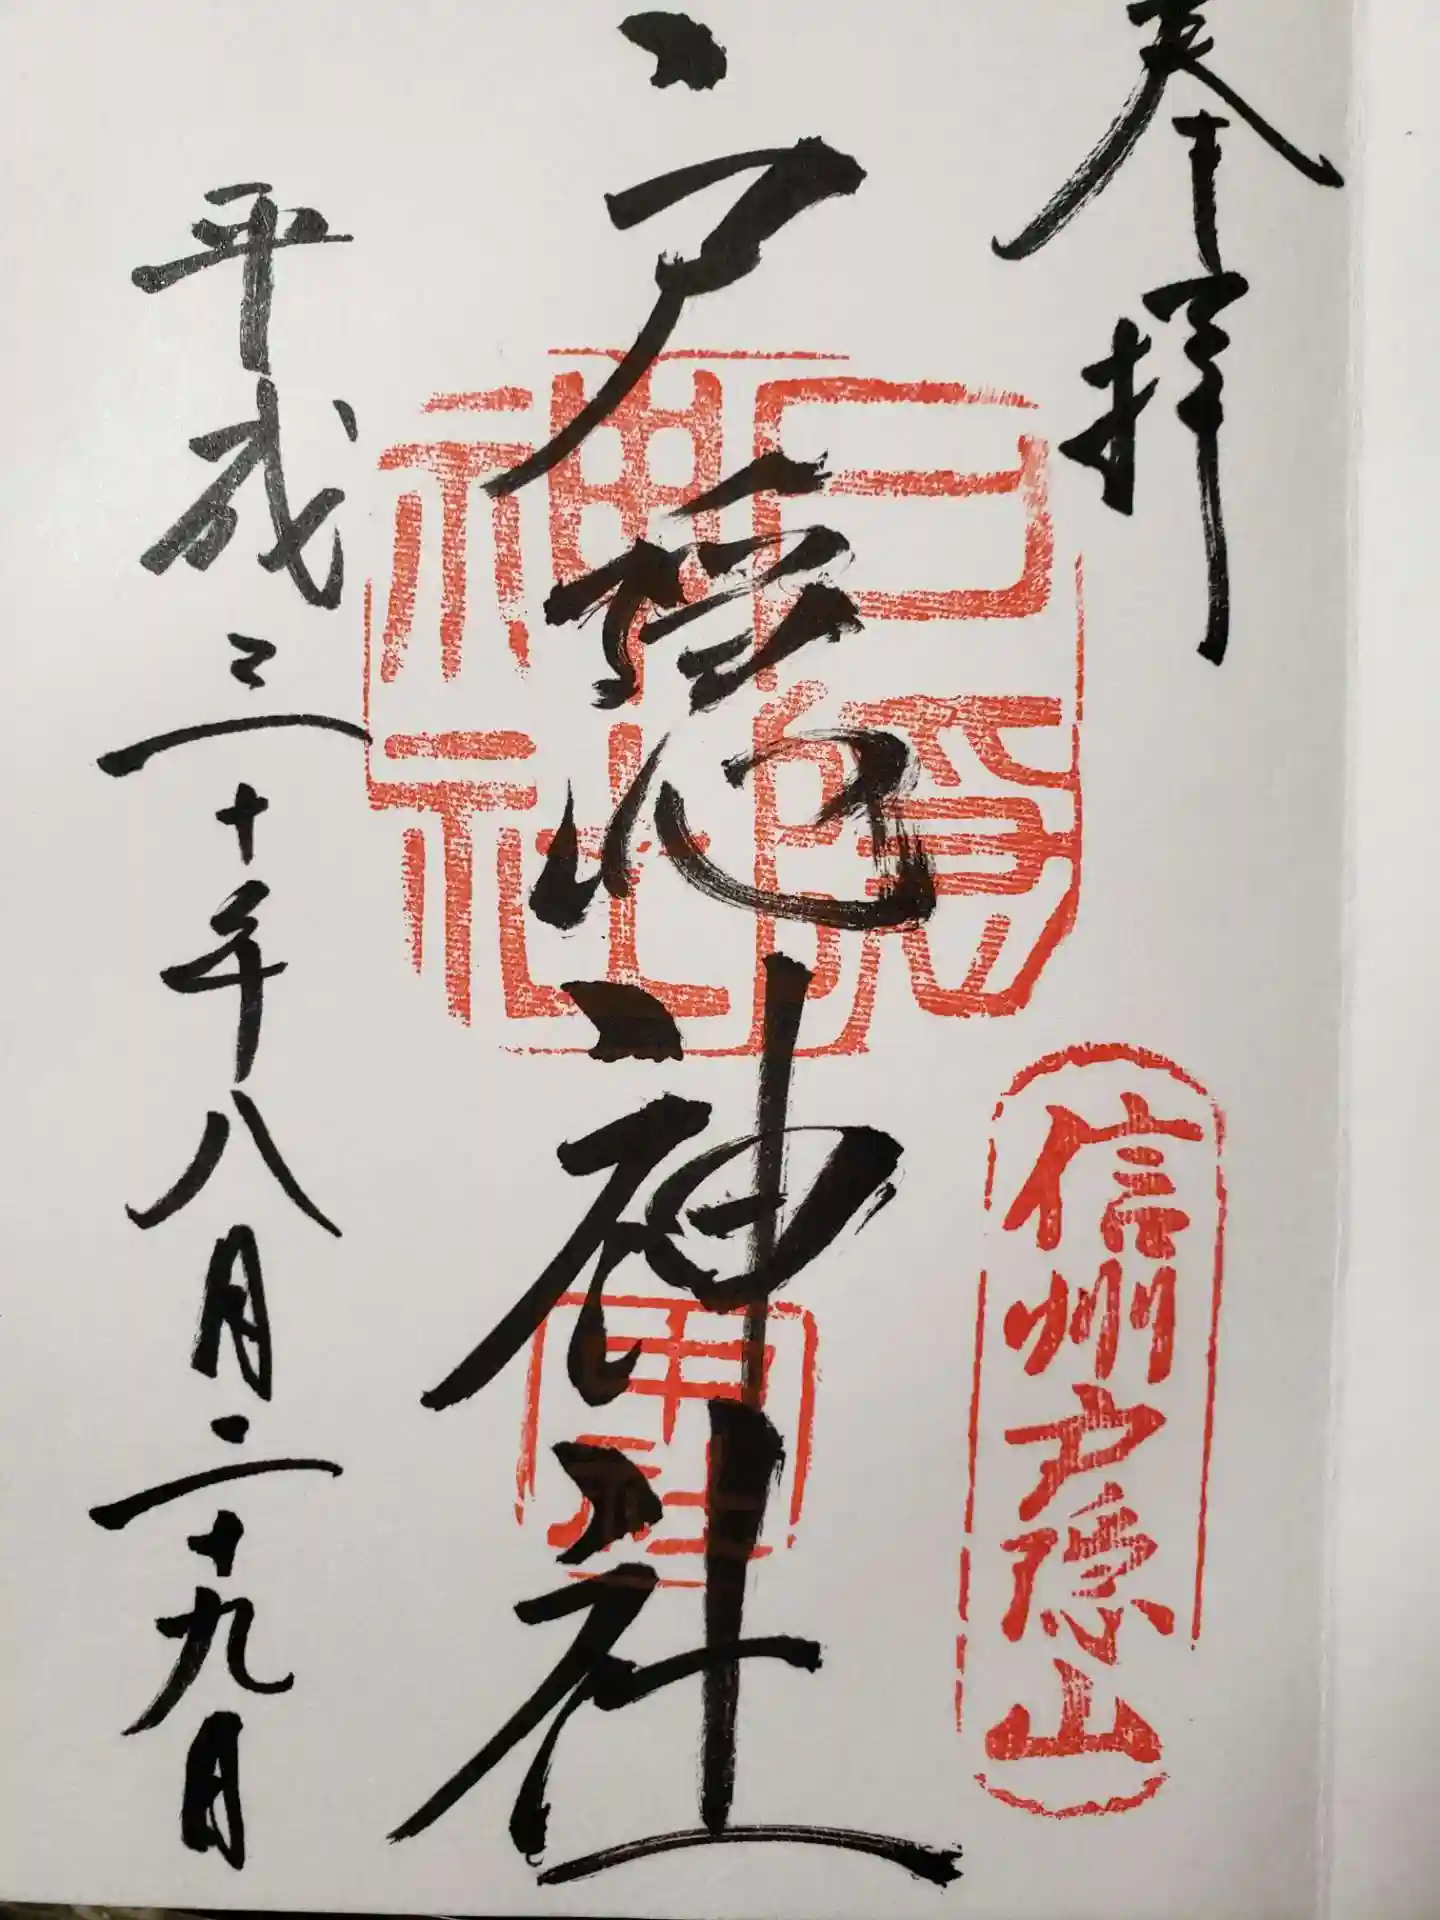 奉拝
信州戸隠山
戸隠神社
戸隠
神社
中社
平成三十年八月二十九日